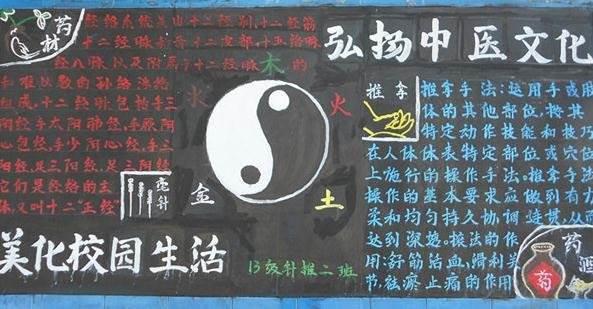 药材
经络系统是由十二经别,十二经筋
十二经脉 十二皮部,十五络脉
经八脉以及附属于十二经脉的
和难以数的孙络浮络
组成,十二经脉包括手三
阳经手太阳肺经,手厥阴
心包经,手少阴心经,手三
阳经,足三阳经,足三阴经
它们是经络的主
体,又叫十二“正经”
毫针
美化校园生活
木
火
火
金
土
13级针推二班
弘扬中医文化
推拿
推拿手法:运用手或肢
体的其他部位,按其
特定动作技能和技巧
在人体体表特定部位或穴位
上施行的操作手法。推拿手法
操作的基本要求应做到有力
柔和均匀持久协调连贯,从而
达到深透。按法的作
用:舒筋活血,滑利关
节,祛瘀止痛的作用
药酒
药